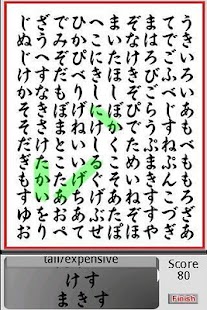 うきいろいあもべもももろざあ
てでごふべじすねぷんづぎ
まはろびごらうぶままますす
ぞなけきぞぴでためいねぞほ
まいたほしぼかくこそあたぽ
へこにきしにけしるぐげぶせ
ひかぴべりげねいいげちあて
でみぞだもぼまとこたあおぺ
ざうへすなききさけたかいをり
なじけかそそだぎもすゆお
tall/expensive
けす
まきす
Score
80
Finish